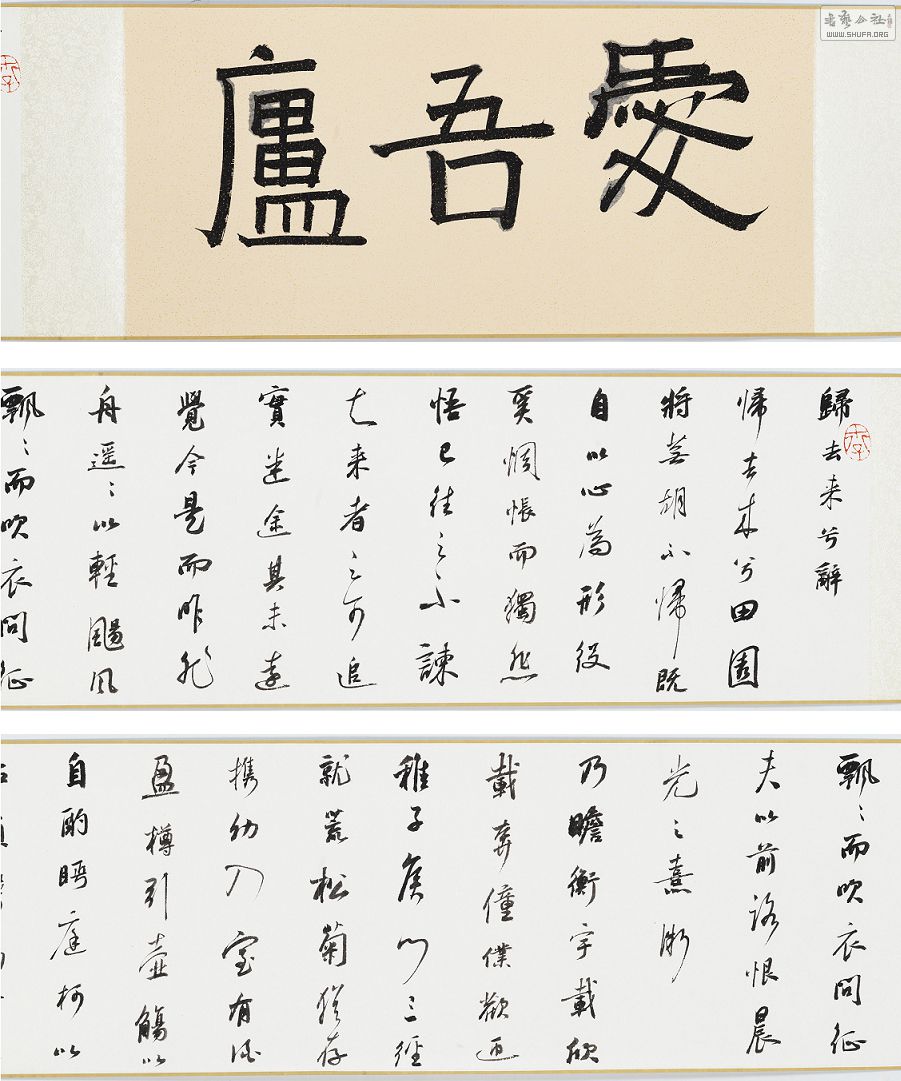 愛吾廬
书艺公社
WWW.SHUFA.ORG
歸去来兮辭
帰去来兮田園
將蕪胡不帰既
自以心為形役
奚惆悵而獨悲
悟已往之不諫
知来者之可追
實迷途其未遠
覺今是而昨非
舟遥〻以輕颺風
飄〻而吹衣問征
飄〻而吹衣問征
夫以前路恨晨
光之熹微
乃瞻衡宇載欣
載奔僮僕歡迎
稚子矦門三徑
就荒松菊猶存
攜幼入室有酒
盈樽引壺觴以
自酌眄庭柯以